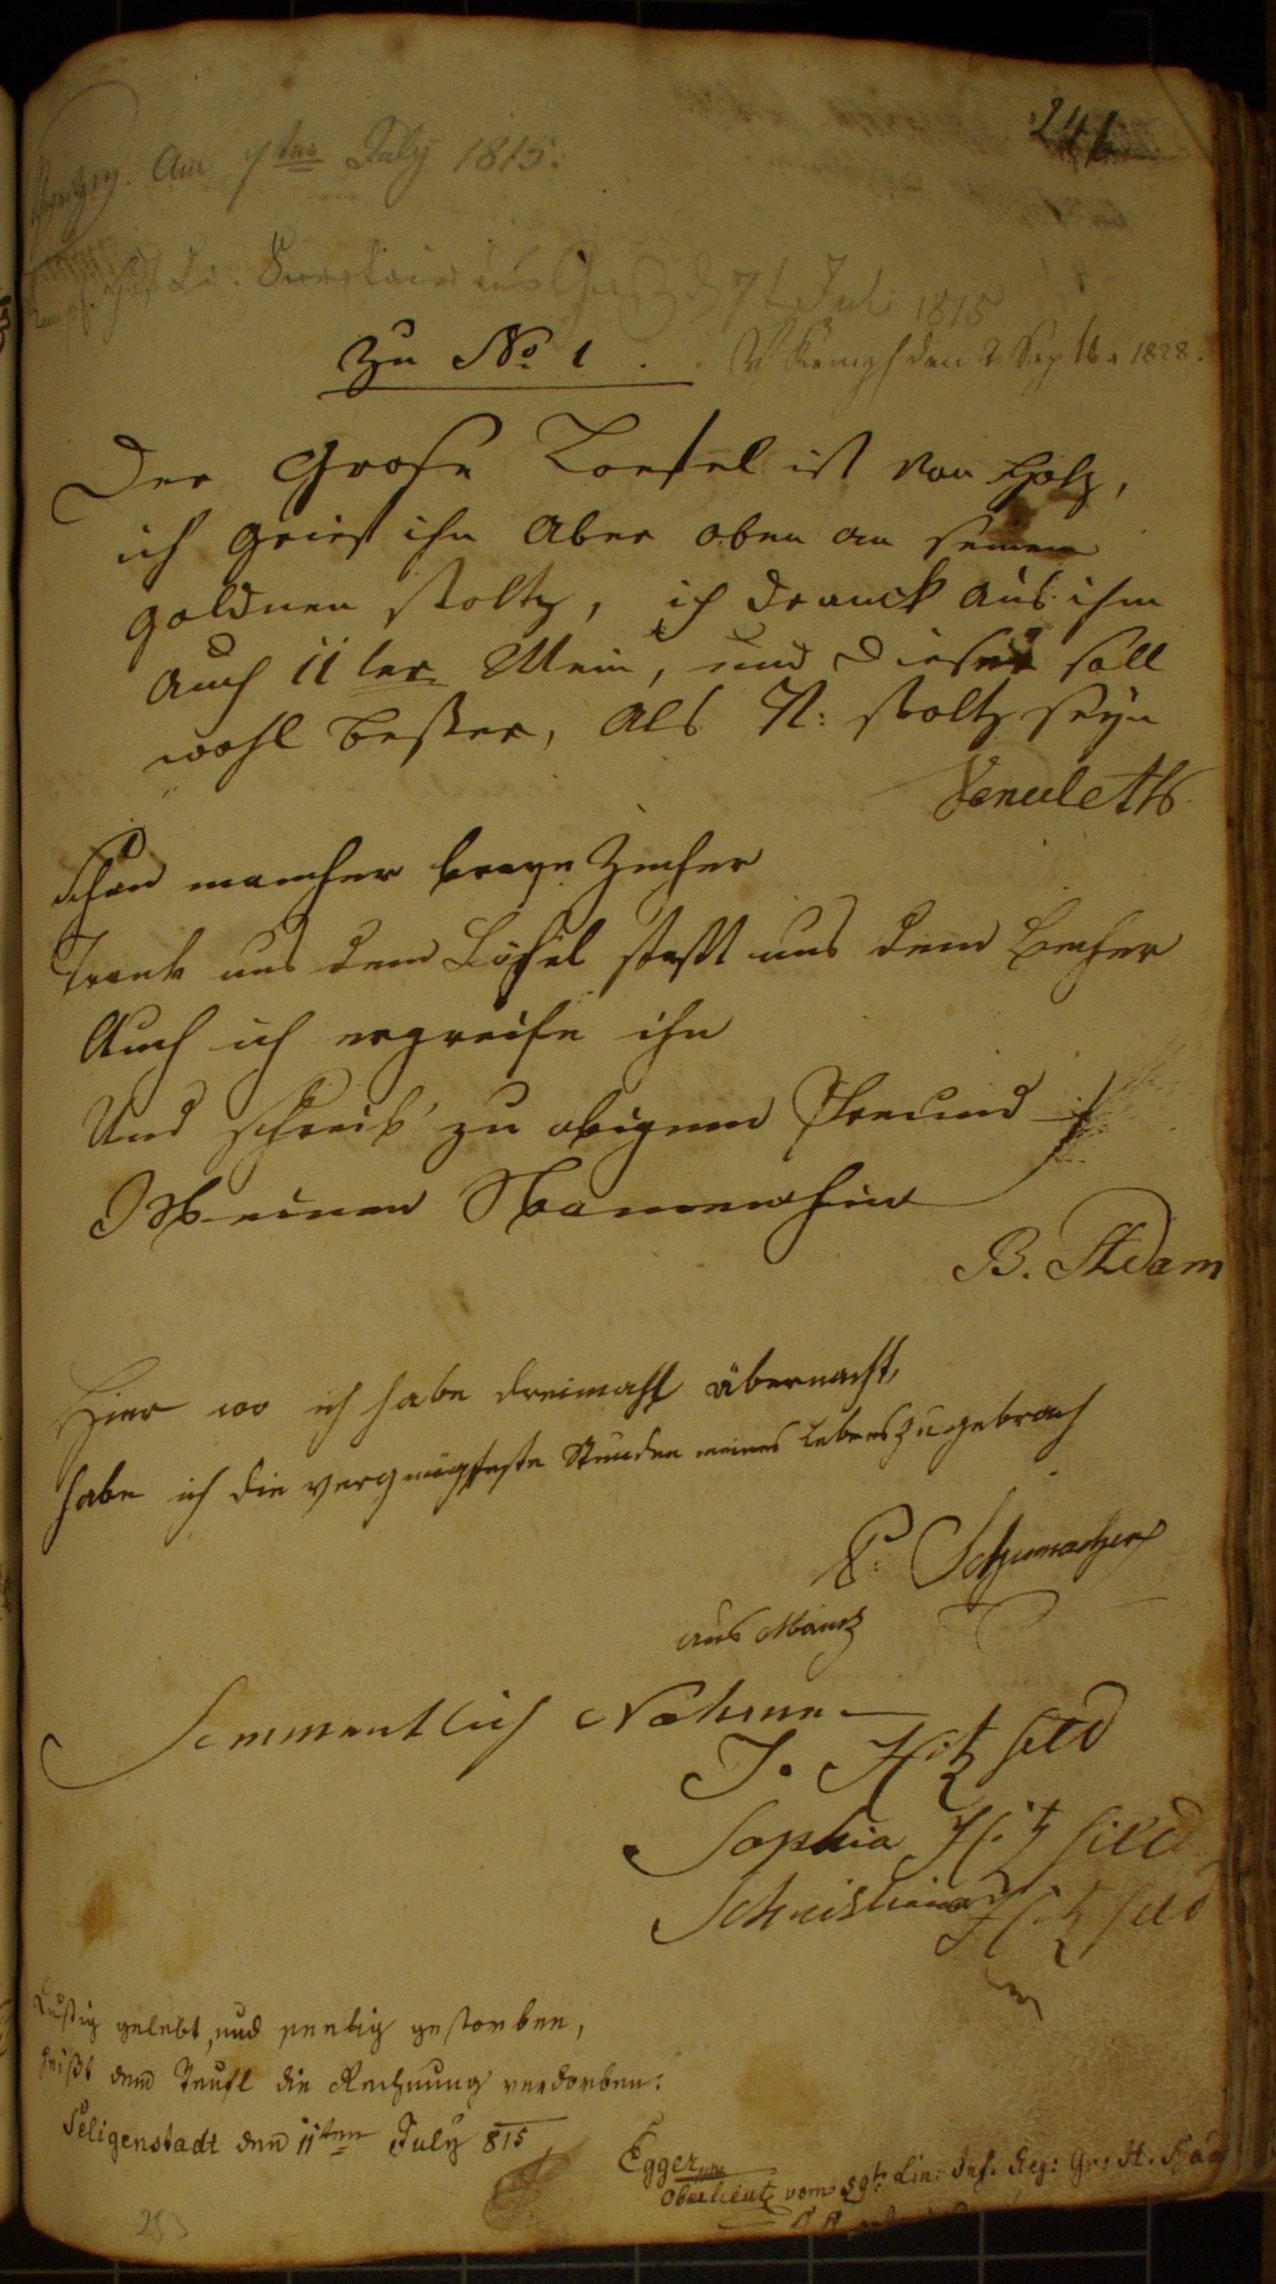 246
Am 7ten July 1815.
7t Juli 1815
Zu No 1.
V Kempf den 2 Septbr 1828.
Der Grose Loefel ist von Holz,
ich Griest ihn Aber oben an seinem
goldnen stoltz, ich dranck aus ihm
auch 11ter Wein, und dieser soll
wohl besser, als N: stoltz seyn
Venuleth
Schon mancher brave Zecher
Trank aus dem Löfel statt aus dem Becher
Auch ich ergreife ihn
Und schreib' zu obigem Freund
Meinen Namen hin
B. Adam
Hier wo ich habe dreimahl übernacht,
habe ich die vergnügteste Stunden meines Lebens zugebrach
P. Schumacher
aus Mainz
Semmentlich Nahmen
J. Hitzfeld
Sophia Hitzfeld
Schristiena Hitzfeld
Lustig gelebt, und seelig gestorben,
heißt dem Teufl die Rechnung verdorben.
Seligenstadt den 11ten July 815
Egger
Oberlieut vom 59t Lin: Inf. Reg: Gr: H. Baa
253